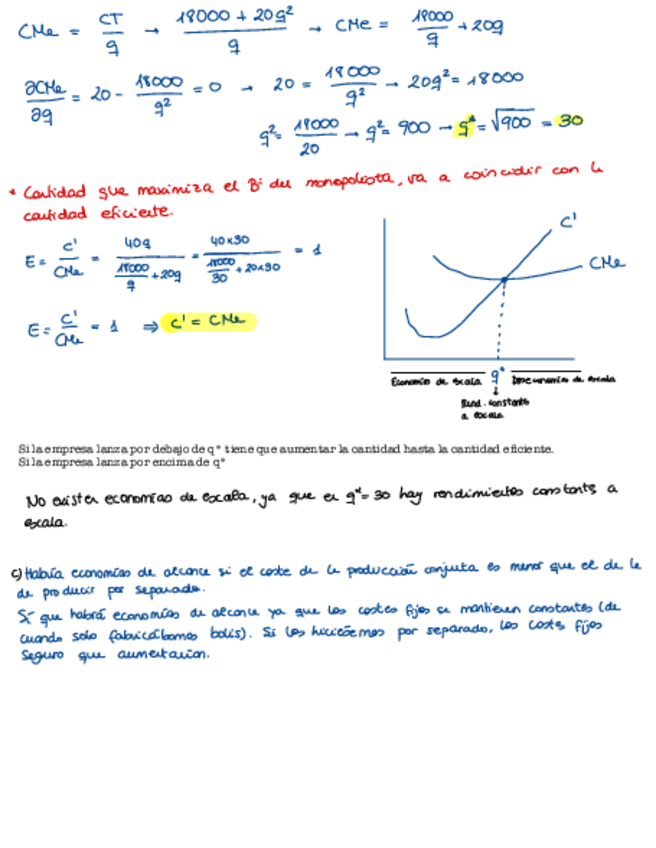 CMe = CT/q → 18000 + 20q²/q → CMe = 18000/q + 20q
∂CMe/∂q = 20 - 18000/q² = 0 → 20 = 18000/q² → 20q² = 18000
q² = 18000/20 → q² = 900 → q* = √900 = 30
* Cantidad que maximiza el Bº del monopolista, va a coincidir con la
cantidad eficiente.
E = C'/CMe = 40q/(18000/q + 20q) = 40x30/(18000/30 + 20x30) = 1
E = C'/CMe = 1 ⇒ C' = CMe
C'
CMe
Economías de escala q* Deseconomías de escala
↓
Rend. constants
a escala
Si la empresa lanza por debajo de q* tiene que aumentar la cantidad hasta la cantidad eficiente.
Si la empresa lanza por encima de q*
No existen economías de escala, ya que en q* = 30 hay rendimientos constants a
escala.
c) Habría economías de alcance si el coste de la producción conjunta es menor que el de la
de producir por separado.
Sí que habrá economías de alcance ya que los costes fijos se mantienen constantes (de
cuando solo fabricábamos bolis). Si los hiciésemos por separado, los costs fijos
seguro que aumentarían.